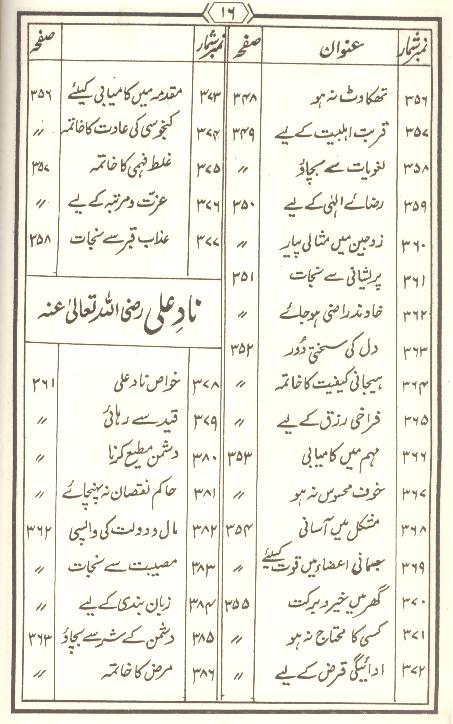 ۱۶
نمبرشمار عنوان صفحہ
۳۵۶ تھکاوٹ نہ ہو ۳۴۸
۳۵۷ قربتِ اہلبیت کے لیے ۳۴۹
۳۵۸ لغویات سے بچاؤ 〃
۳۵۹ رضائے الٰہی کے لیے ۳۵۰
۳۶۰ زوجین میں مثالی پیار 〃
۳۶۱ پریشانی سے نجات ۳۵۱
۳۶۲ خاوند راضی ہو جائے 〃
۳۶۳ دل کی سختی دُور ۳۵۲
۳۶۴ ہیجانی کیفیت کا خاتمہ 〃
۳۶۵ فراخی رزق کے لیے 〃
۳۶۶ مہم میں کامیابی ۳۵۳
۳۶۷ خوف محسوس نہ ہو 〃
۳۶۸ مشکل میں آسانی ۳۵۴
۳۶۹ جسمانی اعضاء میں قوت کیلئے 〃
۳۷۰ گھر میں خیر و برکت ۳۵۵
۳۷۱ کسی کا محتاج نہ ہو 〃
۳۷۲ ادائیگی قرض کے لیے 〃
نمبرشمار صفحہ
۳۷۳ مقدمہ میں کامیابی کیلئے ۳۵۶
۳۷۴ کنجوسی کی عادت کا خاتمہ 〃
۳۷۵ غلط فہمی کا خاتمہ ۳۵۷
۳۷۶ عزّت و مرتبہ کے لیے 〃
۳۷۷ عذاب قبر سے نجات ۳۵۸
نادِ علی رضی اللہ تعالیٰ عنہ
۳۷۸ خواص ناد علی ۳۶۱
۳۷۹ قید سے رہائی 〃
۳۸۰ دشمن مطیع کرنا 〃
۳۸۱ حاکم نقصان نہ پہنچائے 〃
۳۸۲ مال و دولت کی واپسی ۳۶۲
۳۸۳ مصیبت سے نجات 〃
۳۸۴ زبان بندی کے لیے 〃
۳۸۵ دشمن کے شر سے بچاؤ ۳۶۳
۳۸۶ مرض کا خاتمہ 〃